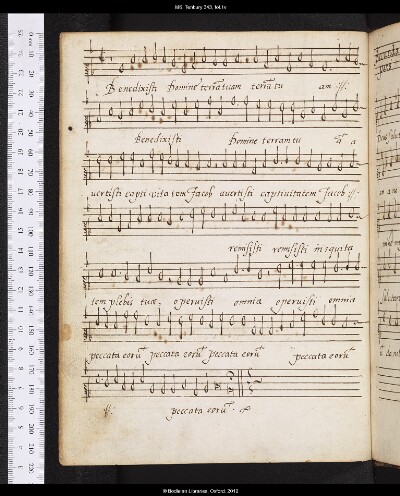 MS. Tenbury 343, fol.1v
Benedixisti Domine terram tuam terrā tu am :||:
Benedixisti Domine terram tu ā a
uertisti capti vita tem Jacob auertisti captiuitatem Jacob :||:
remisisti remisisti iniquita
tem plebis tuæ. operuisti omnia operuisti omnia
peccata eorū peccata eorū peccata eorū peccata eorū
:||: peccata eorū.
© Bodleian Libraries, Oxford, 2013